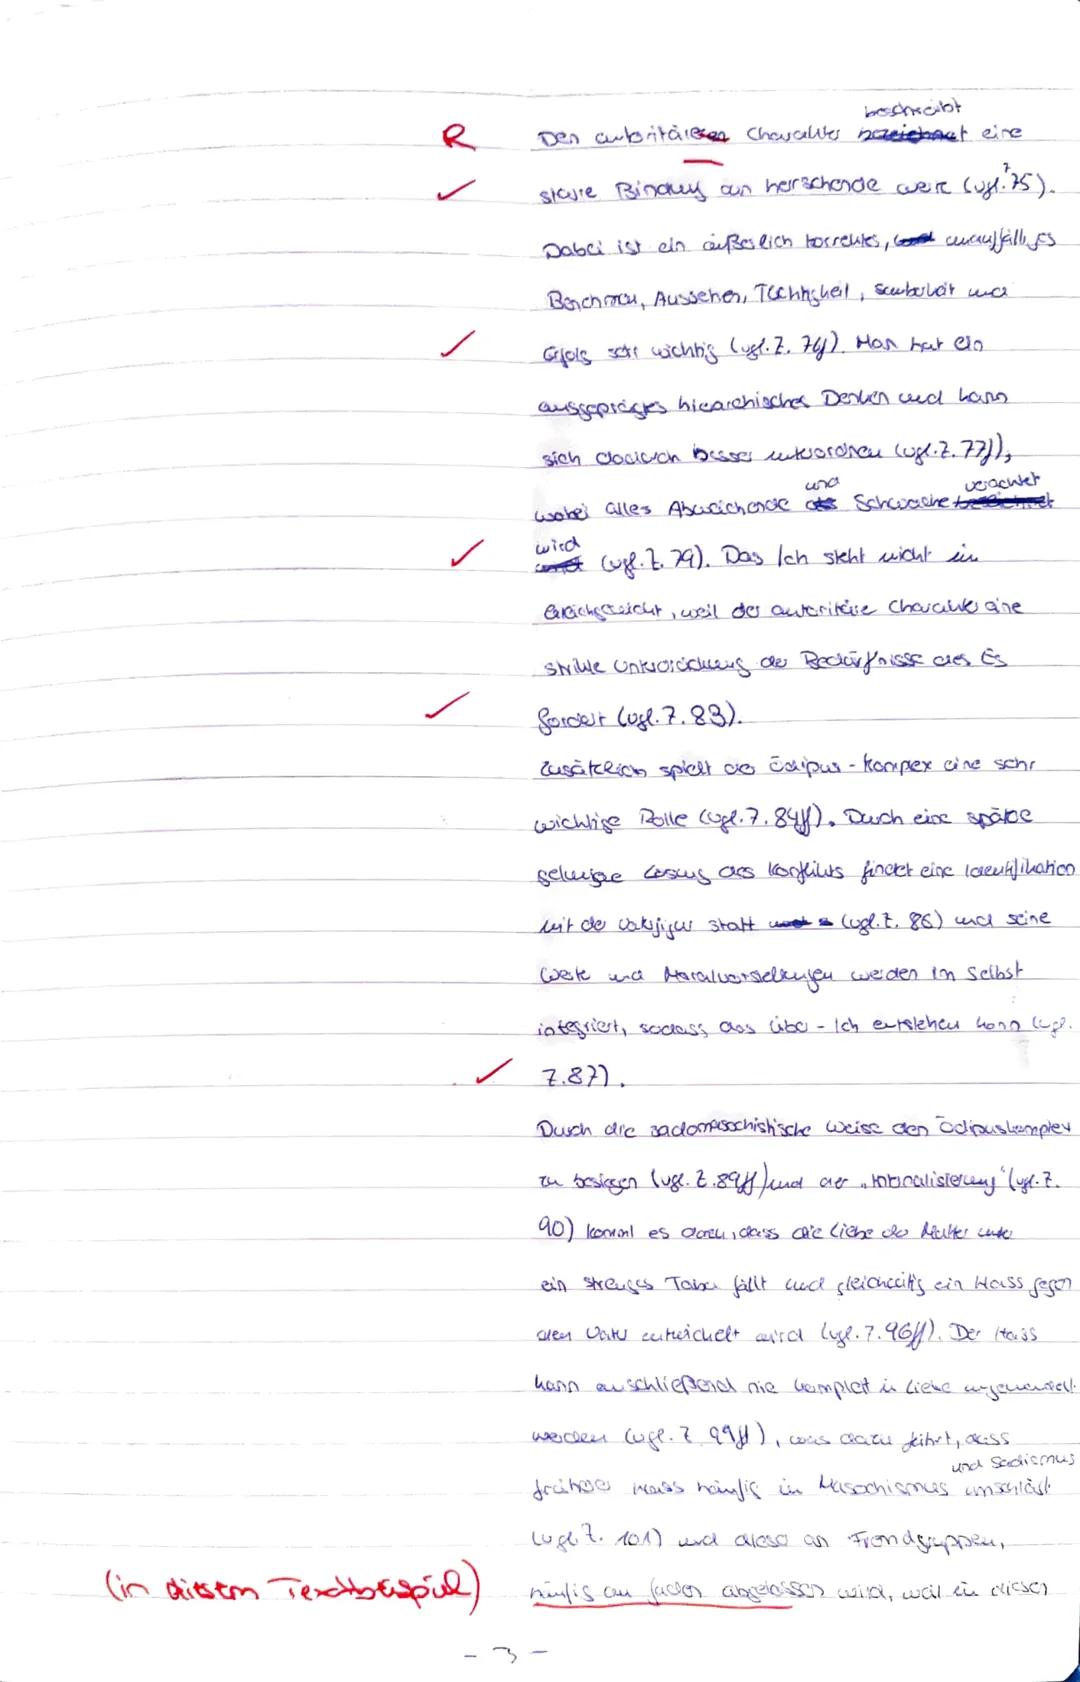 beschreibt
R Den autoritären Charakter bezeichnet eine
starre Bindung an herrschende Werte (vgl. Z. 75).
Dabei ist ein äußerlich korrektes, und unauffälliges
Benehmen, Aussehen, Tüchtigkeit, Sauberkeit und
Erfolg sehr wichtig (vgl. Z. 76f). Man hat ein
ausgeprägtes hierarchisches Denken und kann
sich dadurch besser unterordnen (vgl. Z. 77f),
und verachtet
wobei alles Abweichende als Schwache
wird
(vgl. Z. 79). Das Ich steht nicht im
Gleichgewicht, weil der autoritäre Charakter eine
strikte Unterordnung der Bedürfnisse des Es
fordert (vgl. Z. 83).
Zusätzlich spielt der Ödipus-Kompex eine sehr
wichtige Rolle (vgl. Z. 84ff). Durch eine späte
gelungene Lösung des Konflikts findet eine Identifikation
mit der Vaterfigur statt (vgl. Z. 86) und seine
Werte und Moralvorstellungen werden im Selbst
integriert, sodass das Über-Ich entstehen kann (vgl.
Z. 87).
Durch die sadomasochistische Weise den Ödipuskomplex
zu besiegen (vgl. Z. 89ff) und der „Internalisierung" (vgl. Z.
90) kommt es dazu, dass die Liebe der Mutter unter
ein strenges Tabu fällt und gleichzeitig ein Hass gegen
den Vater entwickelt wird (vgl. Z. 96ff). Der Hass
kann anschließend nie komplett in Liebe umgewandelt
werden (vgl. Z. 99ff), was dazu führt, dass
und Sadismus
früherer Hass häufig in Masochismus umschlägt
(vgl. Z. 101) und dieser an Fremdgruppen,
(in diesem Textbeispiel) häufig an Juden abgelassen wird, weil in dieser
- 3 -